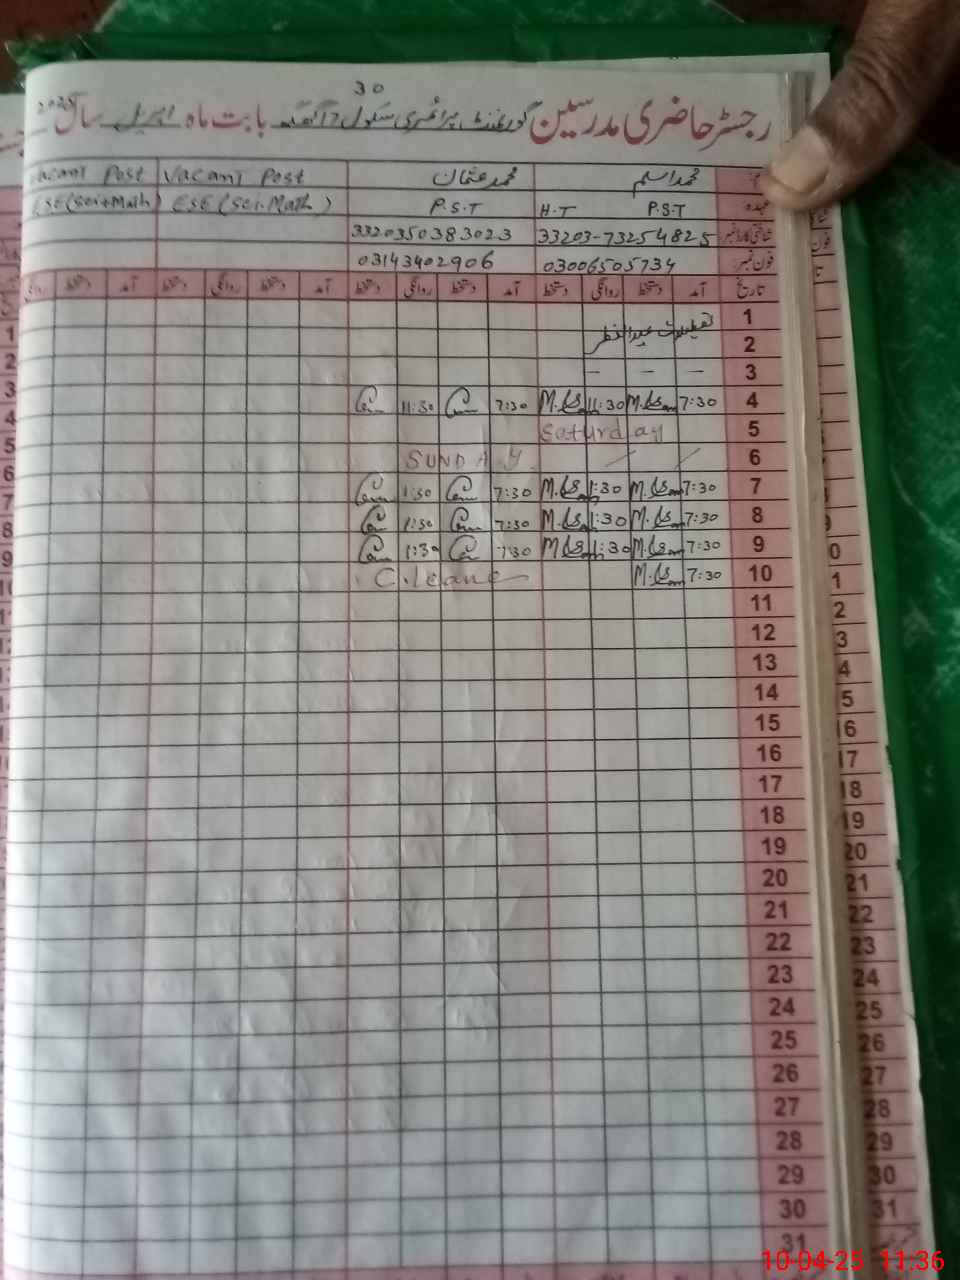 30
رجسٹر حاضری مدرسین گورنمنٹ پرائمری سکول بابت ماہ اپریل سال 2025
نام محمد اسلم محمد عثمان Vacant Post Vacant Post
عہدہ P.S.T H.T P.S.T ESE (Sci-Math) ESE (Sci+Math)
شناختی کارڈ نمبر 33203-73254825 3320350383023
فون نمبر: 03006505734 03143402906
تاریخ آمد دستخط روانگی دستخط آمد دستخط روانگی دستخط آمد دستخط روانگی دستخط آمد دستخط روانگی
1 تعطیلات عید الفطر
2
3 — — —
4 7:30 M. 11:30 M. 7:30 11:30
5 Saturday
6 SUNDAY
7 7:30 M. 1:30 M. 7:30 1:30
8 7:30 M. 1:30 M. 7:30 1:30
9 7:30 M. 1:30 M. 7:30 1:30
10 7:30 M. C.leave
11
12
13
14
15
16
17
18
19
20
21
22
23
24
25
26
27
28
29
30
31
10-04-25 11:36